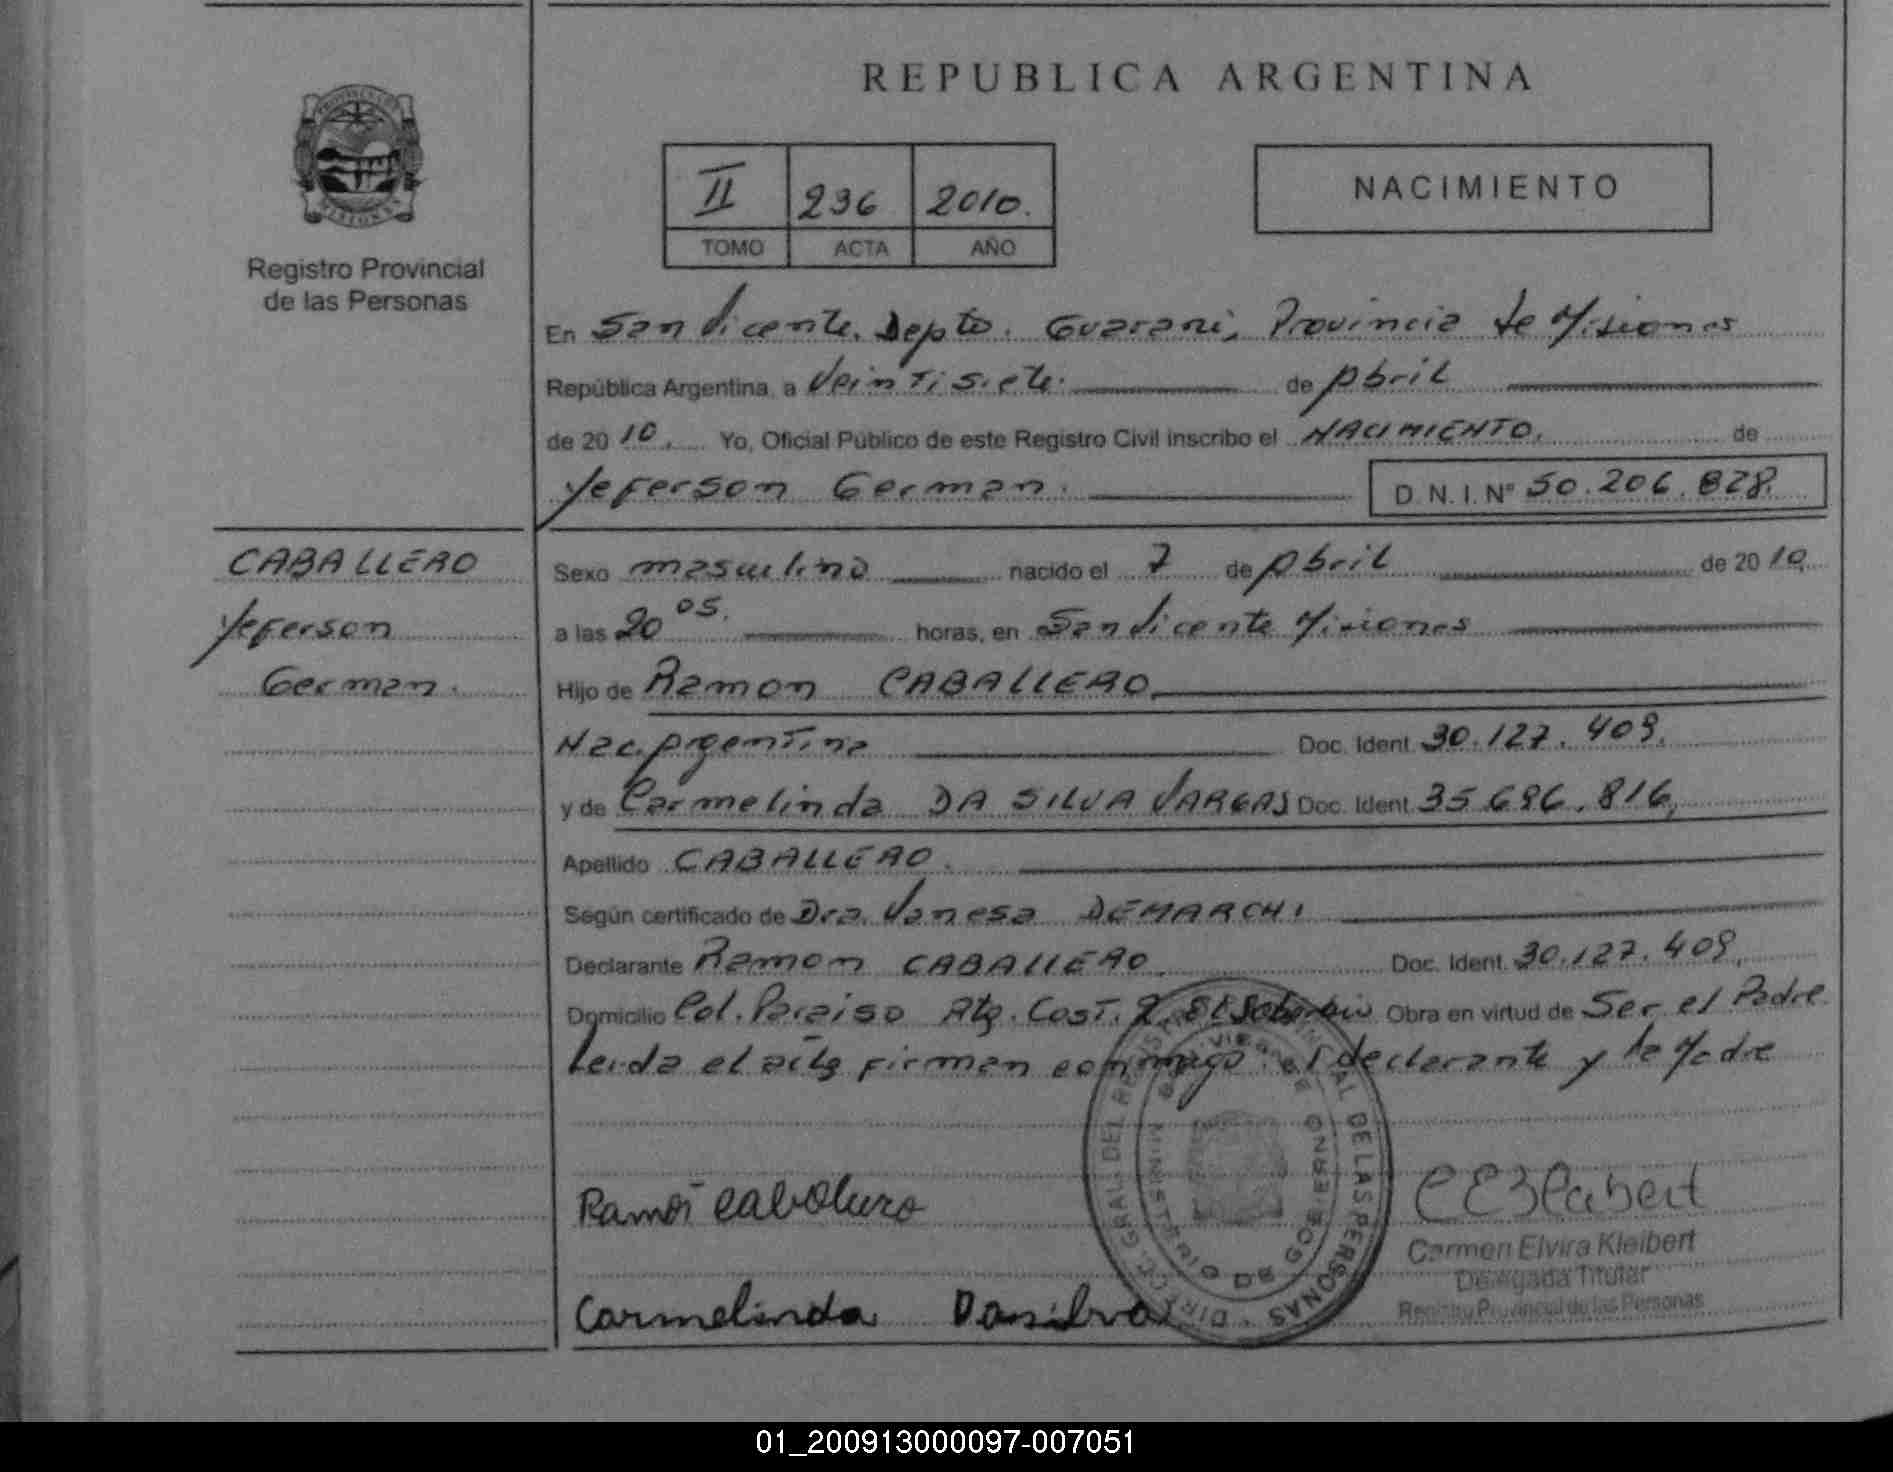 REPUBLICA ARGENTINA
PROVINCIA DE
MISIONES
Registro Provincial
de las Personas
II 236 2010.
TOMO ACTA AÑO
NACIMIENTO
En San Vicente. Depto. Guarani, Provincia de Misiones
República Argentina, a Veintisiete. de Abril
de 20 10. Yo, Oficial Público de este Registro Civil inscribo el NACIMIENTO. de
Yeferson German. D.N.I. N° 50.206.828.
CABALLERO
Yeferson
German.
Sexo masculino nacido el 7 de Abril de 20 10.
a las 20 05. horas, en San Vicente Misiones
Hijo de Ramon CABALLERO
Nac. Argentina Doc. Ident. 30.127.409.
y de Carmelinda DA SILVA VARGAS Doc. Ident. 35.686.816,
Apellido CABALLERO.
Según certificado de Dra. Vanesa DEMARCHI
Declarante Ramon CABALLERO. Doc. Ident. 30.127.409,
Domicilio Col. Paraiso Rta. Cost. 2 El Soberbio Obra en virtud de Ser el Padre
Leida el acta firman conmigo el declarante y la Madre
Ramon Caballero
Carmelinda Dasilva
DIRECC. GRAL. DEL REGISTRO PROVINCIAL DE LAS PERSONAS
MINISTERIO DE GOBIERNO
Carmen Elvira Kleibert
Delegada Titular
Registro Provincial de las Personas
01_200913000097-007051